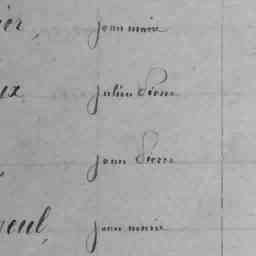 ier, jean marie
ux julien Pierre
, jean Pierre
geul, jean marie